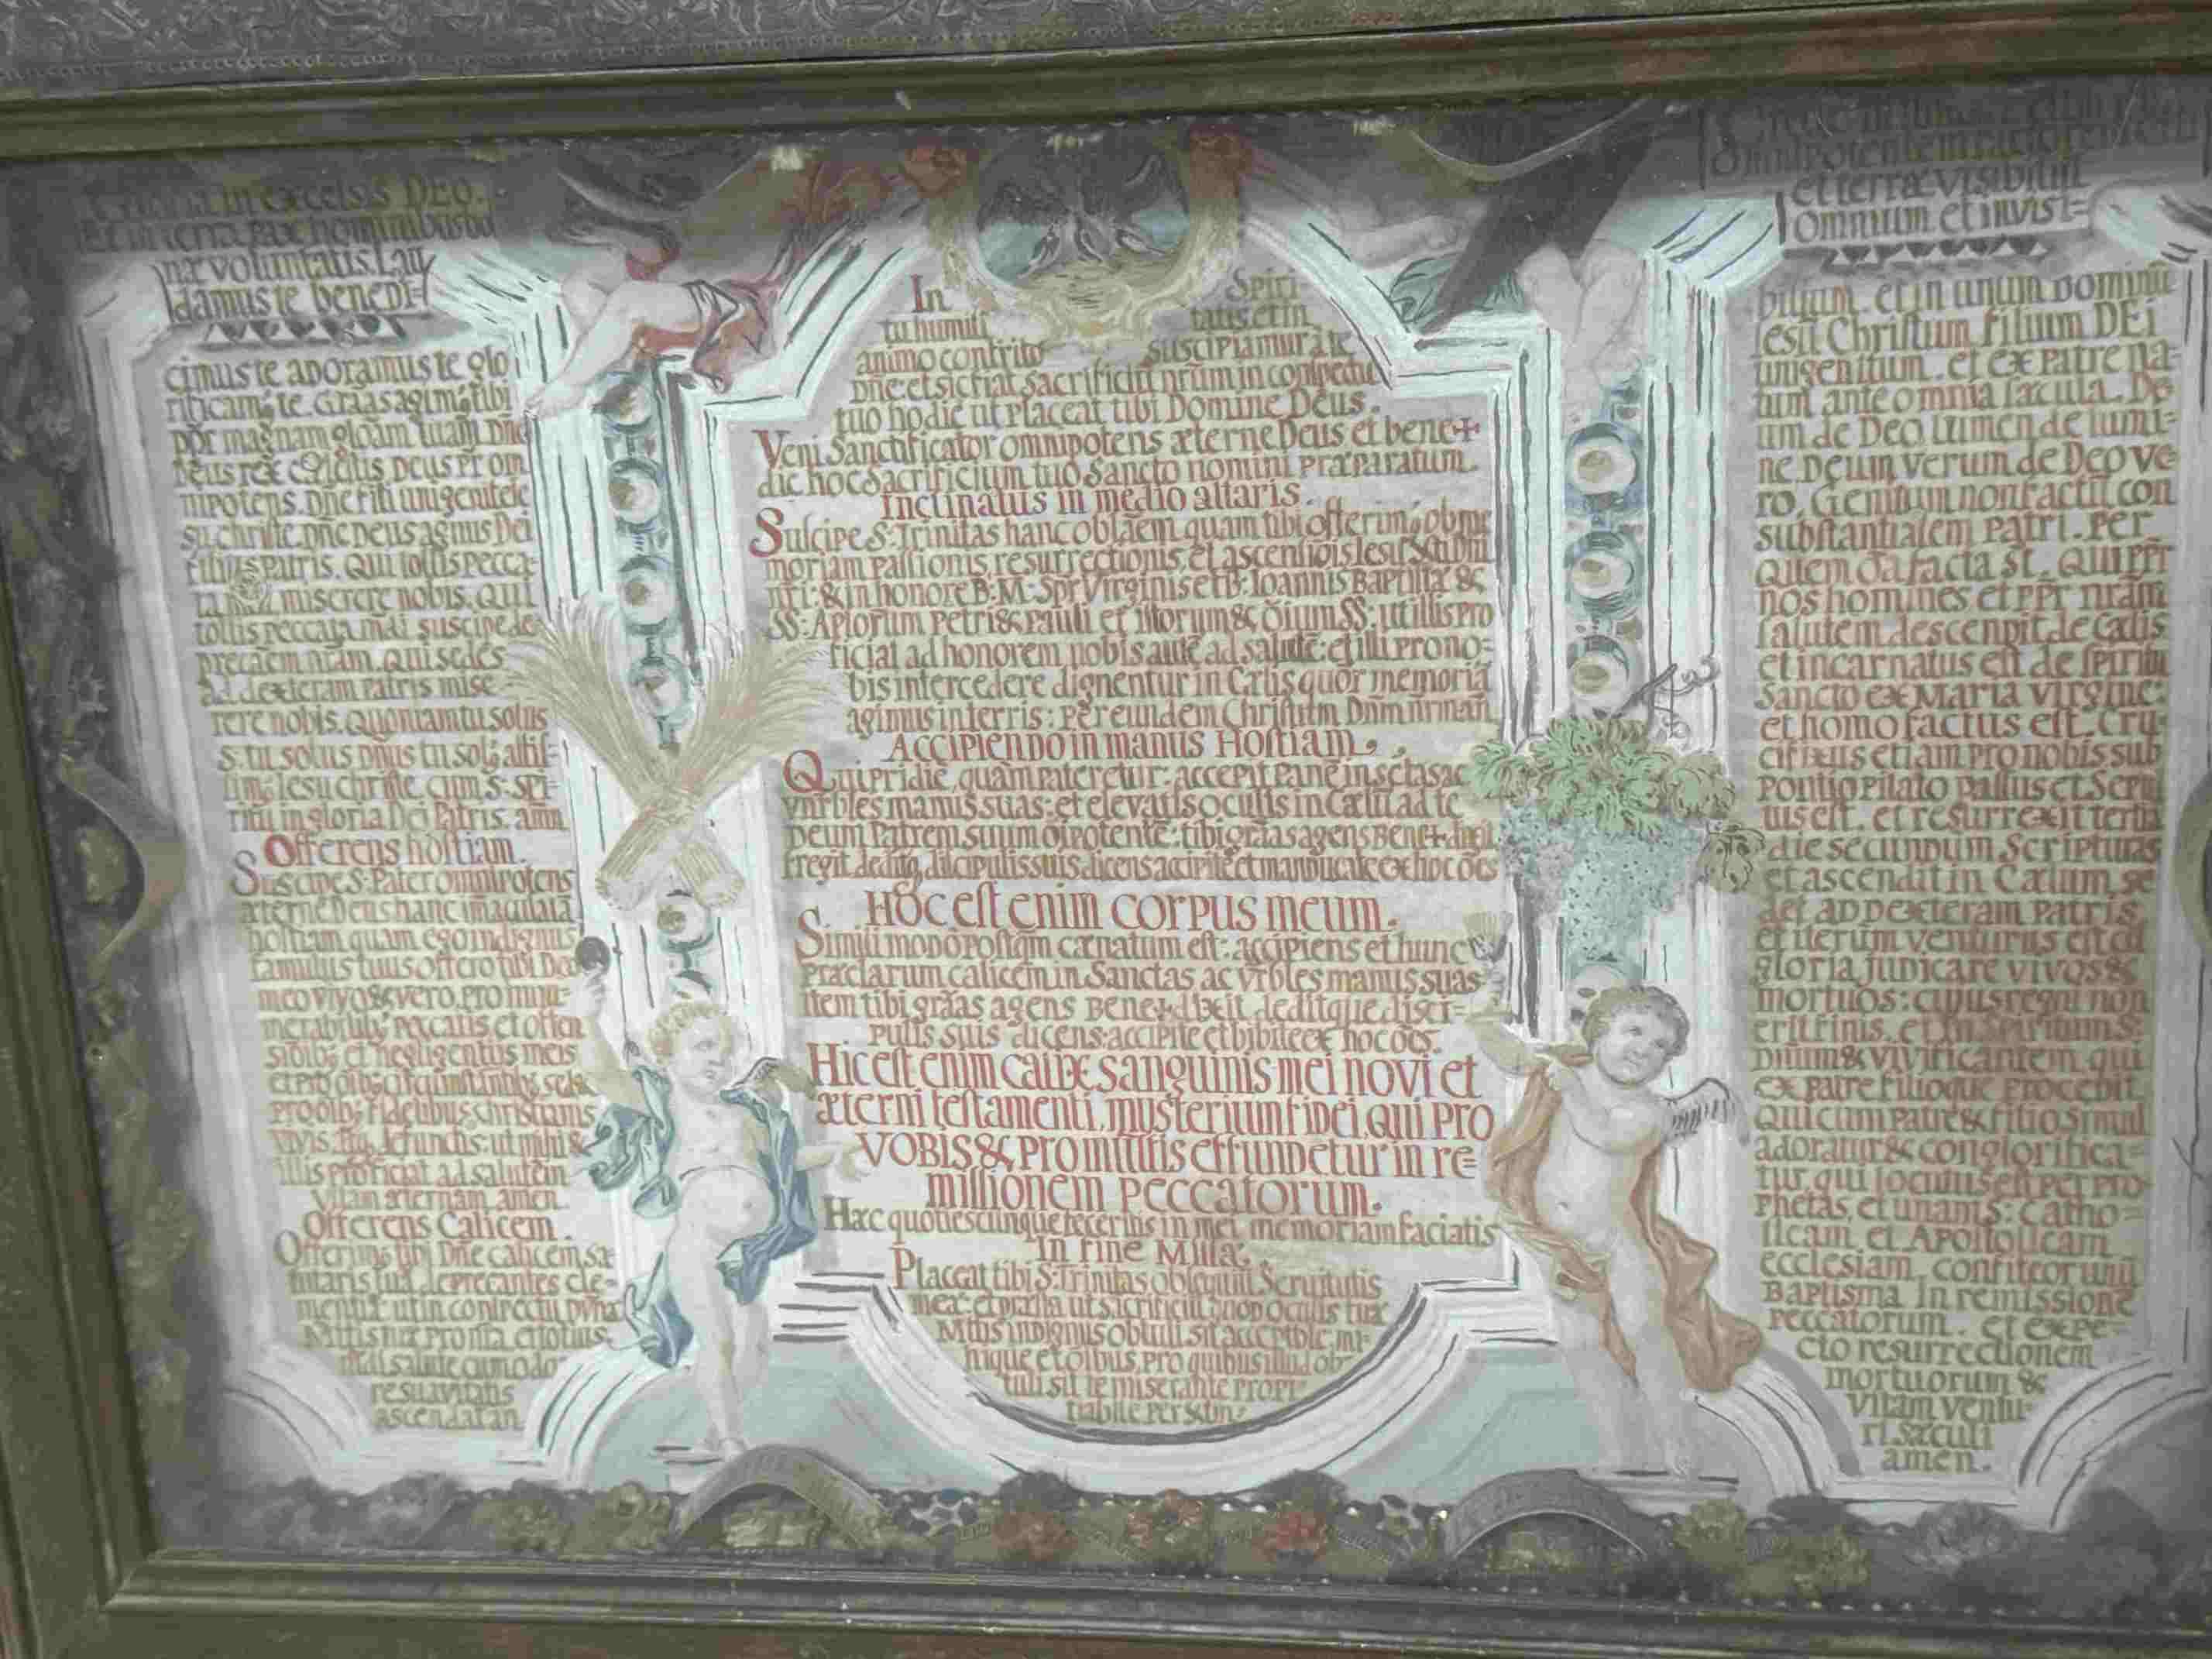 Gloria in excelsis DEO.
Et in terra pax hominibus bo
næ voluntatis. Lau
damus te benedi=
cimus te adoramus te glo
rificam9 te. Grãas agim9 tibi
ppr magnam gloãm tuam Dñe
Deus rex cælestis Deus Pr om
nipotens. Dñe fili unigenite Ie
su christe Dñe Deus agnus Dei
filius Patris. Qui tollis pecca=
miserere nobis. Qui
tollis peccata mdi suscipe de
precãem nrãm. Qui sedes
ad dexteram Patris mise
rere nobis. Quoniam tu solus
s: tu solus Dñus tu sol9 altis=
sim9 Iesu christe. cum S: Spi=
ritu in gloria Dei Patris. amñ
Offerens hostiam.
Suscipe S: Pater omnipotens
æterne Deus hanc im̃aculatã
hostiam quam ego indignus
famulus tuus offero tibi Deo
meo vivo & vero. pro innu=
merabilib9 peccatis et offen
sionib9 et negligentiis meis
et pro oib9 circumstantib9 sed &
pro oib9 fidelibus christianis
vivis atq defunctis: ut mihi &
illis proficiat ad salutem
vitam æternam. amen.
Offerens Calicem.
Offerim9 tibi Dñe calicem sa=
lutaris tuã deprecantes cle=
mentiã: ut in conspectu Dvinæ
Mttis tuæ pro nrã et totius
mdi salute cum odo
re suavitatis
ascendat an
In Spiri
tu humili tatis et in
animo contrito suscipiamur a te
Dñe: et sic fiat Sacrificiũ nrũm in conspectu
tuo hodie ut placeat tibi Domine Deus.
Veni Sanctificator omnipotens æterne Deus et bene+
dic hoc Sacrificium tuo Sancto nomini præparatum.
Inclinatus in medio altaris.
Suscipe S: Trinitas hanc oblãem quam tibi offerim9 ob me
moriam passionis resurrectionis et ascensiõis Iesu
nri: & in honore B: M: Spr Virginis et B: Ioannis Baptistæ &
SS: Aplorum Petri & Pauli et istorum & õium SS: ut illis pro
ficiat ad honorem nobis autẽ ad salutẽ: et illi pro no=
bis intercedere dignentur in Cælis quor memoriã
agimus in terris: Per eundem Christum Dnm nrm añ
Accipiendo in manus Hostiam.
Qui pridie quam pateretur: accepit panẽ in sctas ac
vnrbles manus suas: et elevatis oculis in Cælũ ad te
Deum Patrem suum oipotentẽ: tibi grãas agens Bene+dixit
fregit deditq discipulis suis dicens accipite et manducate ex hoc oẽs
HOC est enim corpus meum.
Simili modo postq̃am cænatum est: accipiens et hunc
præclarum calicem in Sanctas ac vrbles manus suas
item tibi grãas agens Bene+dixit deditque disci=
pulis suis dicens: accipite et bibite ex hoc oẽs.
Hic est enim calix sanguinis mei novi et
æterni testamenti, mysterium fidei, qui pro
vobis & pro multis effundetur in re=
missionem peccatorum.
Hæc quotiescunque feceritis in mei memoriam faciatis
In fine Missæ.
Placeat tibi S: Trinitas obsequiũ Servitutis
meæ: et præsta ut sacrificiũ quod oculis tuæ
Mttis indignus obtuli, sit acceptble, mi=
hique et oibus, pro quibus illud ob=
tuli sit te miserante propi=
tiabile per
omnipotentem factorem
et terræ visibiliũ
omnium et invisi=
bilium. et in unum Dominũ
Iesũ Christum filium DEI
unigenitum. et ex Patre na=
tum ante omnia sæcula. De=
um de Deo lumen de lumi=
ne Deum verum de Deo ve=
ro. Genitum non factũ con
substantialem Patri. Per
quem õa facta st. Qui ppr
nos homines et ppr nrãm
salutem descendit de Cælis
et incarnatus est de spiritu
Sancto ex Maria virgine:
et homo factus est. Cru=
cifixus etiam pro nobis sub
Pontio Pilato passus et Sepul
tus est. et resurrexit tertia
die secundum Scripturas
et ascendit in Cælum se
det ad dexteram Patris
et iterũm venturus est cũ
gloria judicare vivos &
mortuos: cujus regni non
erit finis. et in Spiritum S:
Dñum & vivificantem qui
ex patre filioque procedit
Qui cum Patre & filio simul
adoratur & conglorifica=
tur. qui locutus est per pro
phetas. et unam S: catho=
licam et Apostolicam
ecclesiam. confiteor unũ
Baptisma In remissionẽ
peccatorum. et expe
cto resurrectionem
mortuorum &
vitam ventu=
ri sæculi
amen.